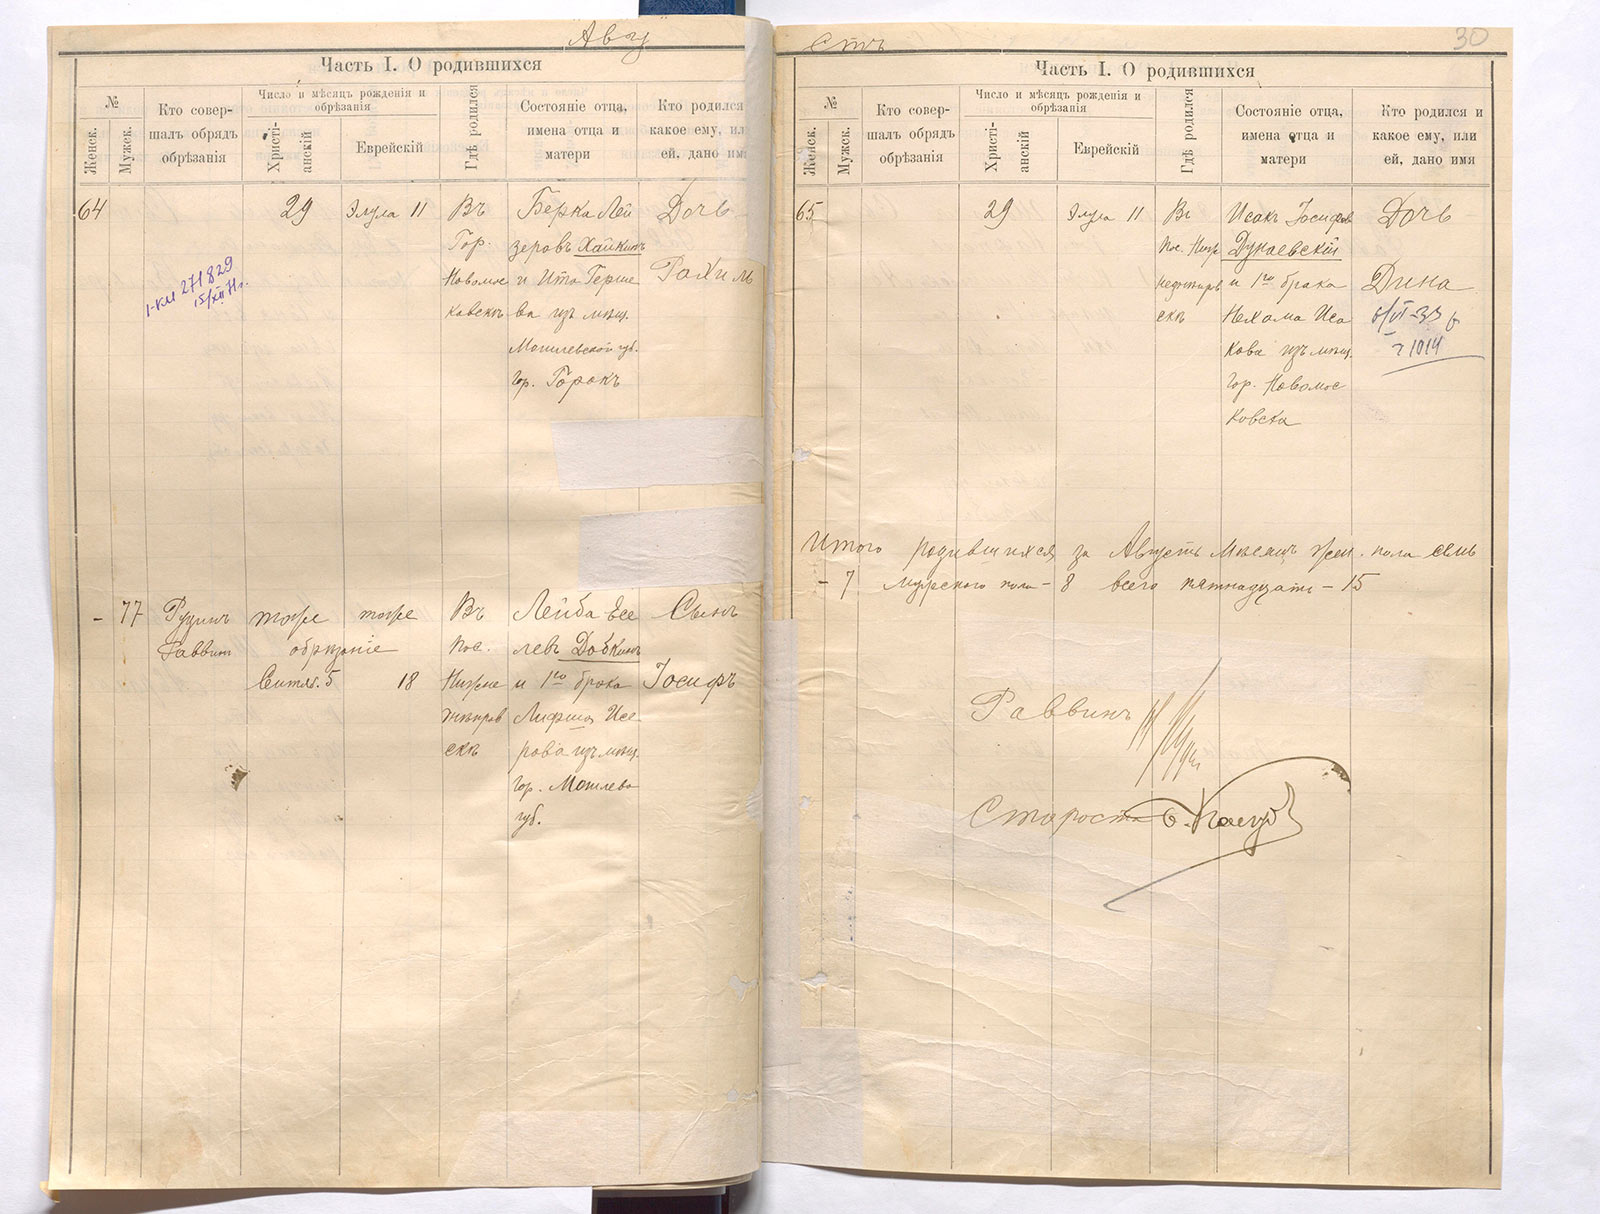 Авгу
Часть I. О родившихся
№
Женск.
Мужск.
Кто совер-
шалъ обрядъ
обрѣзанія
Число и мѣсяцъ рожденія и
обрѣзанія
Христі-
анскій
Еврейскій
Гдѣ родился
Состояніе отца,
имена отца и
матери
Кто родился
какое ему, или
ей, дано имя
64
29
Элула 11
Въ
Гор.
Новомос
ковскъ
Берка Лей
зеровъ Хайкинъ
и Ита Герше
ва изъ мѣщ.
Могилевской губ.
гор. Горокъ
Дочь
Рахиль
271829
15/XII 71г.
77
Рудинъ
Раввин
тоже тоже
обрѣзаніе
Сентяб. 5 18
Въ
пос.
Нижне
днѣпров
скѣ
Лейба Есе
левъ Добкинъ
и 1го брака
Лифша Исе
рова изъ мѣщ.
гор. Могилева
губ.
Сынъ
Іосифъ
стъ
30
Часть I. О родившихся
№
Женск.
Мужск.
Кто совер-
шалъ обрядъ
обрѣзанія
Число и мѣсяцъ рожденія и
обрѣзанія
Христі-
анскій
Еврейскій
Гдѣ родился
Состояніе отца,
имена отца и
матери
Кто родился и
какое ему, или
ей, дано имя
65
29
Элула 11
Въ
пос. Ниж
недниѣпров
скѣ
Исакъ Іосифов
Дунаевскій
и 1го брака
Нехама Иса
кова изъ мѣщ.
гор. Новомос
ковска
Дочь
Дина
6/VI-33
1014
Итого родившихся за Августъ мѣсяцъ жен. пола семь
- 7 мужского пола - 8 всего пятнадцать - 15
Раввинъ
Староста